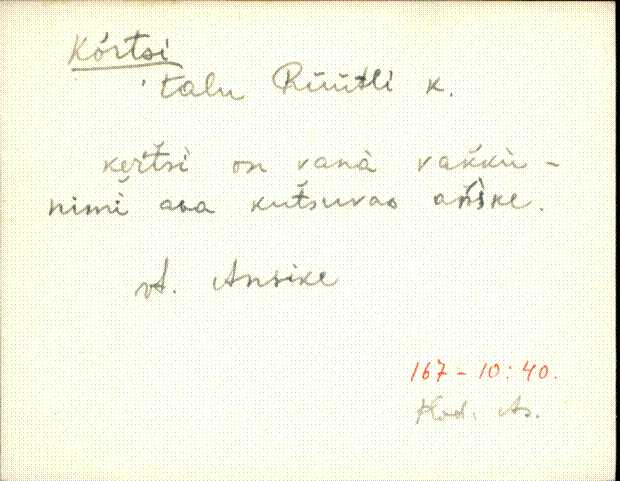 Kórtsi
talu Rüütli k.
kertsi on vanà vakkù-
nimi ava kutsuvao ańske.
vt. Ansike
167-10:40.
Kod. As.